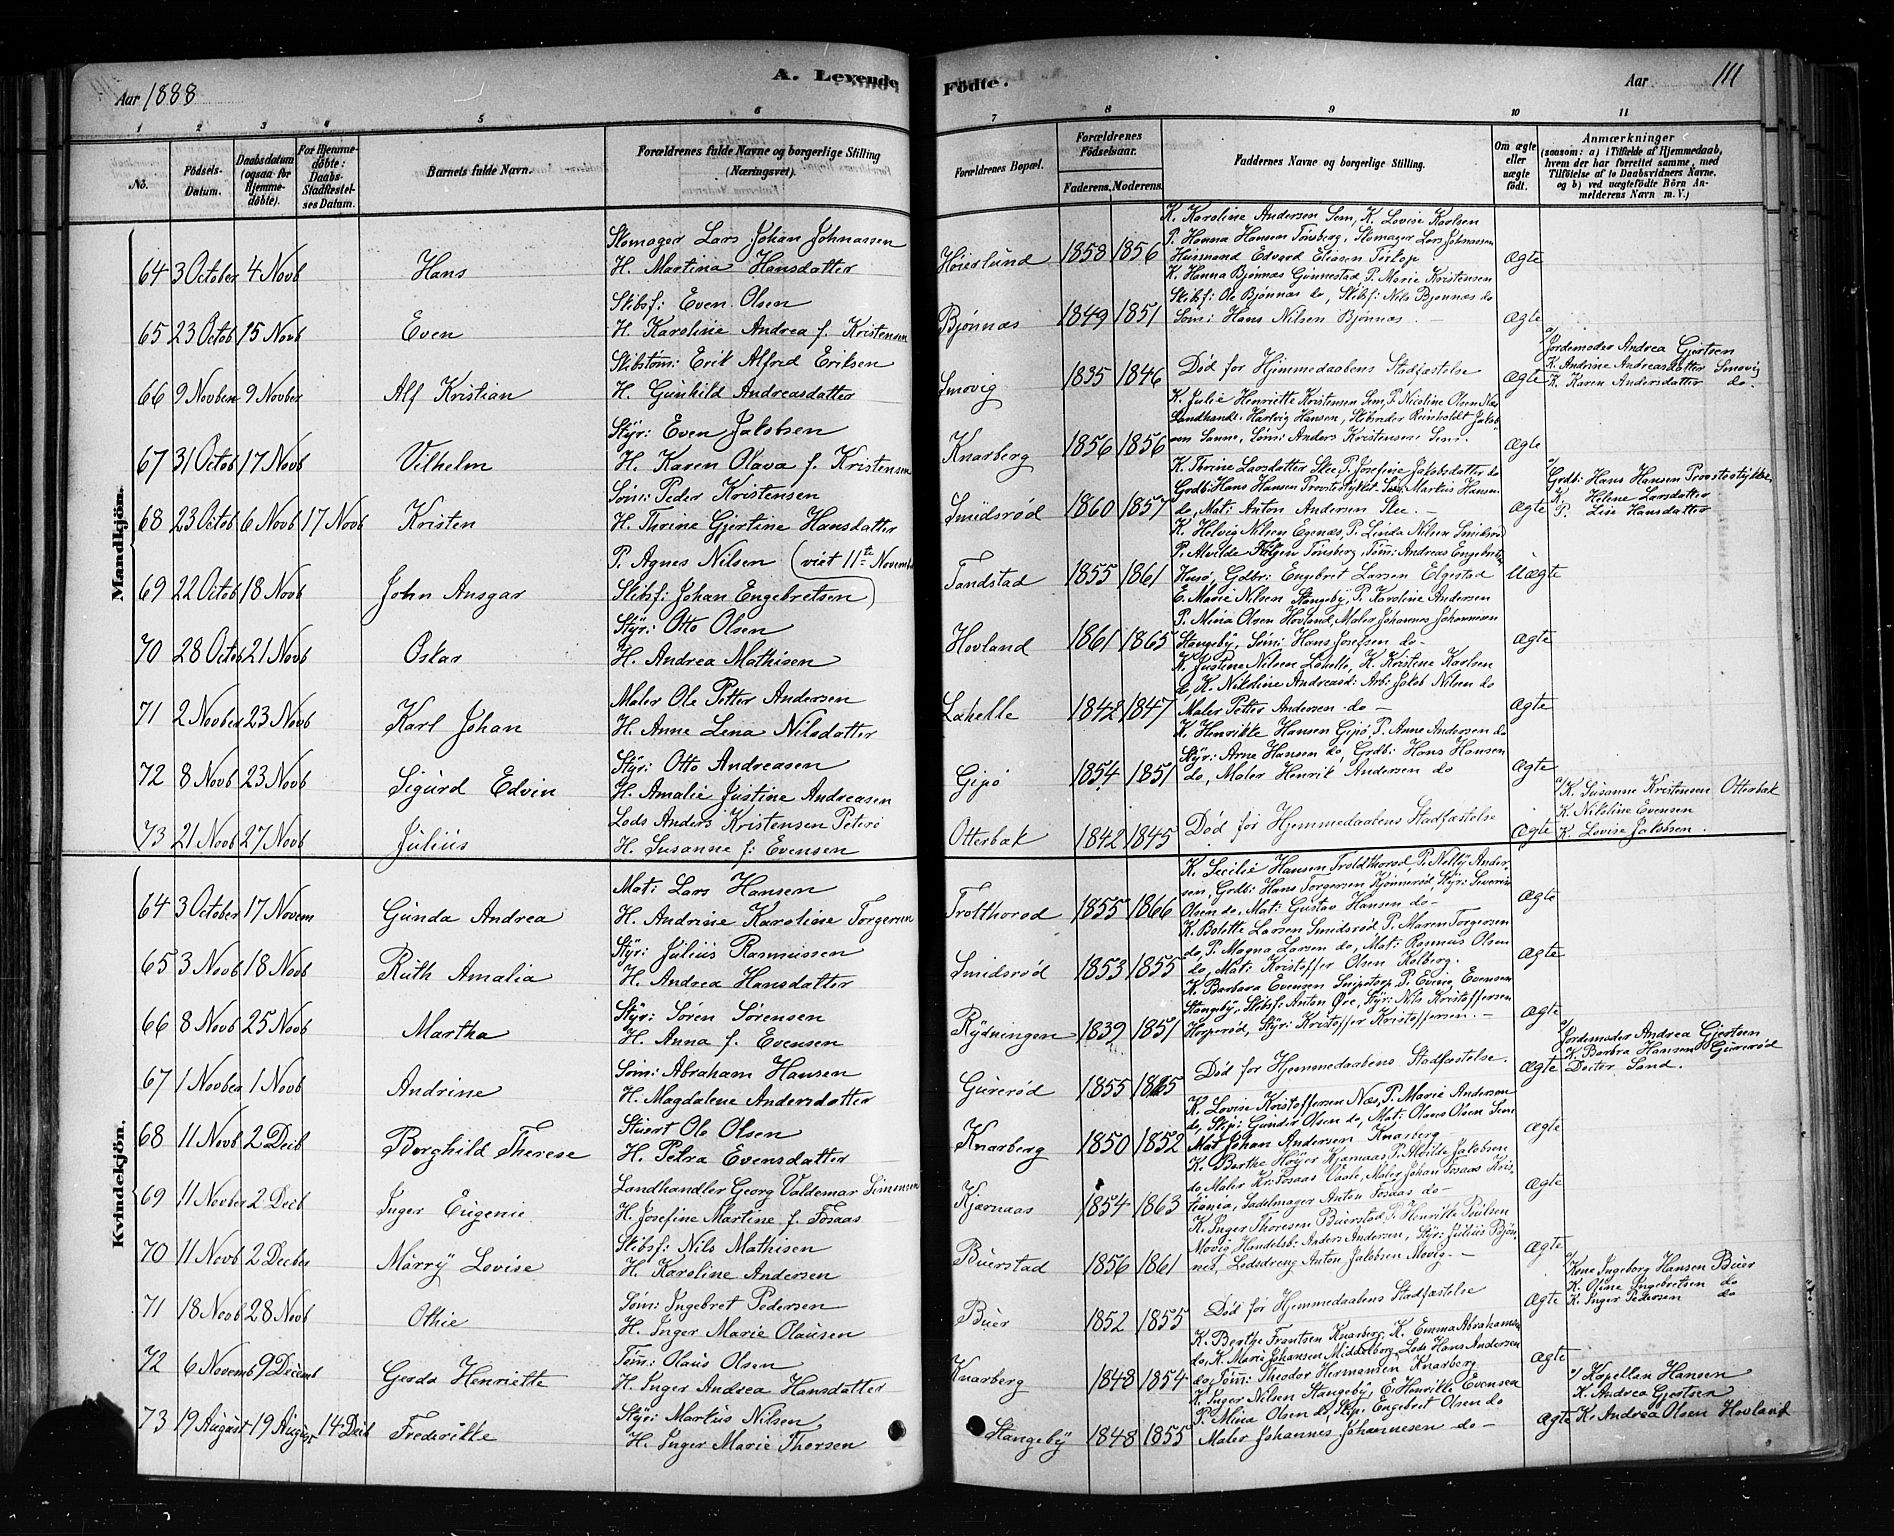 Aar 1888
A. Levende Födte.
Aar 111
1 2 3 4 5 6 7 8 9 10 11
No.
Födsels-Datum.
Daabsdatum (ogsaa for Hjemme-döbte).
For Hjemme-döbte: Daabs-Stadfæstel-ses Datum.
Barnets fulde Navn.
Forældrenes fulde Navne og borgerlige Stilling (Næringsvei).
Forældrenes Bopæl.
Forældrenes Födselsaar.
Faderens. Moderens.
Faddernes Navne og borgerlige Stilling.
Om ægte eller uægte födt.
Anmærkninger
(saasom: a) i Tilfælde af Hjemmedaab, hvem der har forrettet samme, med Tilföielse af to Daabsvidners Navne, og b) ved uægtefödte Börn Anmelderens Navn m. V.)
Mandkjön.
64 3 October 4 Novb Hans
Skomager Lars Johan Johnassen
H. Martina Hansdatter
Høierlund 1858 1856
K. Karoline Andersen Sem, K. Lovise Karlsen
P. Hanna Hansen Tönsberg, Skomager Lars Johnassen
Huusmand Edvard Eliasen Torkop
Ægte
65 23 Octob 15 Novb Even
Skibsf: Even Olsen
H. Karoline Andrea f. Kristensen
Bjönnæs 1849 1851
K. Hanna Bjönnæs Ginnestad P. Marie Kristensen
Skibsf: Ole Bjönnæs do, Skibsf: Nils Bjønnæs do
Söm: Hans Nilsen Bjönnæs
Ægte
66 9 Novben 9 Novber Alf Kristian
Skibstöm: Erik Alfred Eriksen
H. Gunhild Andreasdatter
Smovig 1835 1846
Död for Hjemmedaabens Stadfæstelse
Ægte
a/ Jordemoder Andrea Gjertsen
K. Andrine Andreasdatter Smovig
K. Karen Andersdatter do.
67 31 Octob 17 Novb Vilhelm
Styr: Even Jakobsen
H. Karen Olava f. Kristensen
Knarberg 1856 1856
K. Julie Henriette Kristensen Sem, P. Nicoline Olsen Næs
Landhandl. Hartvig Hansen, Skibsreder Reinholdt Jakob
sen Sanne, Söm: Anders Kristensen Sem.
Ægte
68 23 Octob 6 Novb 17 Novb Kristen
Söm: Peder Kristensen
H. Thrine Gjertine Hansdatter
Smidsrød 1860 1857
K. Thrine Larsdatter Slee, P. Josefine Jakobsdatter do
Grdb: Hans Hansen Proostestykket Sem, Markus Hansen
do, Mat: Anton Andersen Slee.
Ægte
a/ Grdb: Hans Hansen Proostestykke,
K. Helene Larsdatter
P. Lise Hansdatter
69 22 Octob 18 Novb John Ansgar
P. Agnes Nilsen (viet 11te Novemb
Skibsf: Johan Engebretsen)
Tandstad 1855 1861
K. Helvig Nilsen Egenæs, P. Linda Nilsen Smidsrød
P. Alvilde Tönsberg, Töm: Andreas Engebretsen
Husö, Gdbr: Engebret Larsen Elgestad
Uægte
70 28 Octob 21 Novb Oskar
Styr: Otto Olsen
H. Andrea Mathisen
Hovland 1861 1865
E. Marie Nilsen Stangeby, P. Karoline Andersen
P. Mina Olsen Hovland, Maler Johannes Johannesen
Stangeby, Söm: Hans Josefsen do
Ægte
71 2 Novber 23 Novb Karl Johan
Maler Ole Petter Andersen
H. Anne Lena Nilsdatter
Lahelle 1842 1847
K. Justine Nilsen Lahelle, K. Kristine Karlsen
do, K. Nikoline Andreasd: Arb: Jakob Nilsen do
Maler Petter Andersen do
Ægte
72 8 Novb 23 Novb Sigurd Edvin
Styr: Otto Andreasen
H. Amalie Justine Andreasen
Gipø 1854 1851
K. Henrikke Hansen Gipö, P. Anne Andersen do
Styr: Arne Hansen do, Grdb: Hans Hansen
do, Maler Henrik Andersen do
Ægte
73 21 Novb 27 Novb Julius
Lods Anders Kristensen Peterö
H. Susanne f: Evensen
Otterbak 1842 1845
Död for Hjemmedaabens Stadfæstelse
Ægte
a/ K. Susanne Kristensen Otterbak
K. Nikoline Evensen
K. Lovise Jakobsen.
Kvindekjön.
64 3 October 17 Novem Gunda Andrea
Mat: Lars Hansen
H. Andrine Karoline Torgersen
Trolthorod 1855 1866
K. Cecilie Hansen Troldthorød, P. Nelly Ander-
sen, Grdb: Hans Torgersen Kjönnerød, Styr: Severin
Olsen do, Mat: Gustav Hansen do
Ægte
65 3 Novb 18 Novb Ruth Amalia
Styr: Julius Rasmussen
H. Andrea Hansdatter
Smidsrød 1853 1855
K. Bolette Larsen Smidsrød P. Maren Torgersen
do, P. Magna Larsen do, Mat: Rasmus Olsen
do, Mat: Kristoffer Olsen Kolberg.
Ægte
66 8 Novb 25 Novb Martha
Styr: Sören Sörensen
H. Anna f. Evensen
Rydningen 1839 1851
K. Barbara Evensen P. Eving Evensen
Stangeby, Skibsf: Anton Øre, Styr: Nils Kristoffersen
Horperød, Styr: Kristoffer Kristoffersen.
Ægte
67 1 Novber 1 Novb Andrine
Söm: Abraham Hansen
H. Magdalene Andersdatter
Gurerød 1855 1865
Död for Hjemmedaabens Stadfæstelse.
Ægte
a/ Jordemoder Andrea Gjertsen
K. Barbra Hansen Gurerød
Doctor Sand.
68 11 Novb 2 Decb Borghild Therese
Stuert Ole Olsen
H. Petra Evensdatter
Knarberg 1850 1852
K. Lovise Kristoffersen Næs, P. Marie Andersen
do, Skip: Gunder Olsen do, Mat: Olaus Olsen Sem
Mat Johan Andersen Knarberg
Ægte
69 11 Novber 2 Decb Inger Eugenie
Landhandler Georg Valdemar Simensen
H. Josefine Martine f. Fosaas
Kjærnaas 1854 1863
K. Berthe Höyer Kjærnaas P. Alvilde Jakobsen
do, Maler Kr. Fosaas Vaale, Maler Johan Fosaas Kris-
tiania, Sadelmager Anton Fosaas do
Ægte
70 11 Novb 2 Decber Märry Lovise
Skibsf: Nils Mathisen
H. Karoline Andersen
Buerstad 1856 1861
K. Inger Thoresen Buerstad, P. Henrikke Poulsen
Movig, Handelsb: Anders Andersen, Styr: Julius Bjön-
nes, Lodsdreng Anton Jakobsen Movig
Ægte
71 18 Novb 28 Novb Othie
Söm: Ingebret Pedersen
H. Inger Marie Olausen
Buer 1852 1855
Död for Hjemmedaabens Stadfæstelse
Ægte
a/ Kone Ingeborg Hansen Buer
K. Oline Engebretsen do
K. Inger Pedersen do
72 6 Novemb 9 Decemb Gerda Henriette
Töm: Olaus Olsen
H. Inger Andrea Hansdatter
Knarberg 1848 1854
K. Berthe Frantsen Knarberg, K. Emma Abrahamsen
do, K. Marie Johansen Middelborg, Lods Hans Andersen
do, Söm: Theodor Hermansen Knarberg
Ægte
73 19 August 19 August 14 Decb Frederikke
Styr: Markus Nilsen
H. Inger Marie Thorsen
Stangeby 1848 1855
K. Inger Nilsen Stangeby, E. Henrikke Evensen
P. Mina Olsen do, Skip: Engebret Olsen do
Maler Johannes Johannesen do
Ægte
a/ Kapellan Hansen
K. Andrea Gjertsen
K. Andrea Olsen Hovland